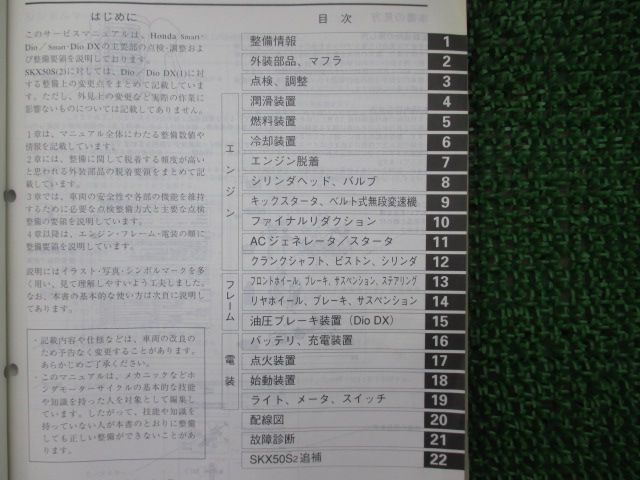 はじめに
このサービスマニュアルは、Honda Smart・
Dio／Smart・Dio DXの主要部の点検・調整およ
び整備要領を説明しております。
SKX50S(2)に対しては、Dio／Dio DX(1)に対
する整備上の変更点をまとめて記載していま
す。ただし、外見上の変更など実際の作業に
影響ないものについては記載してありません。
1章は、マニュアル全体にわたる整備数値や
情報を記載しています。
2章には、整備に関して脱着する頻度が高い
と思われる外装部品の脱着要領をまとめて記
載しています。
3章では、車両の安全性や各部の機能を維持
するために必要な点検整備方式と主要な点検
整備の要領を説明しています。
4章以降は、エンジン・フレーム・電装の順に
整備要領を説明しています。
説明にはイラスト・写真・シンボルマークを多
く用い、見て理解しやすいよう工夫しました。
なお、本書の基本的な使い方は次頁に説明し
てあります。
・記載内容や仕様などは、車両の改良の
ため予告なく変更することがあります。
あらかじめご了承ください。
・このマニュアルは、メカニックなどホ
ンダモーターサイクルの基本的な技能
や知識を持った人を対象として編集し
ています。したがって、技能や知識を
持っていない人が本書のとおりに整備
しても正しい整備ができないことがあ
ります。
目 次
整備情報 1
外装部品、マフラ 2
点検、調整 3
エンジン
潤滑装置 4
燃料装置 5
冷却装置 6
エンジン脱着 7
シリンダヘッド、バルブ 8
キックスタータ、ベルト式無段変速機 9
ファイナルリダクション 10
ACジェネレータ／スタータ 11
クランクシャフト、ピストン、シリンダ 12
フレーム
フロントホイール、ブレーキ、サスペンション、ステアリング 13
リヤホイール、ブレーキ、サスペンション 14
油圧ブレーキ装置（Dio DX） 15
電装
バッテリ、充電装置 16
点火装置 17
始動装置 18
ライト、メータ、スイッチ 19
配線図 20
故障診断 21
SKX50S2追補 22